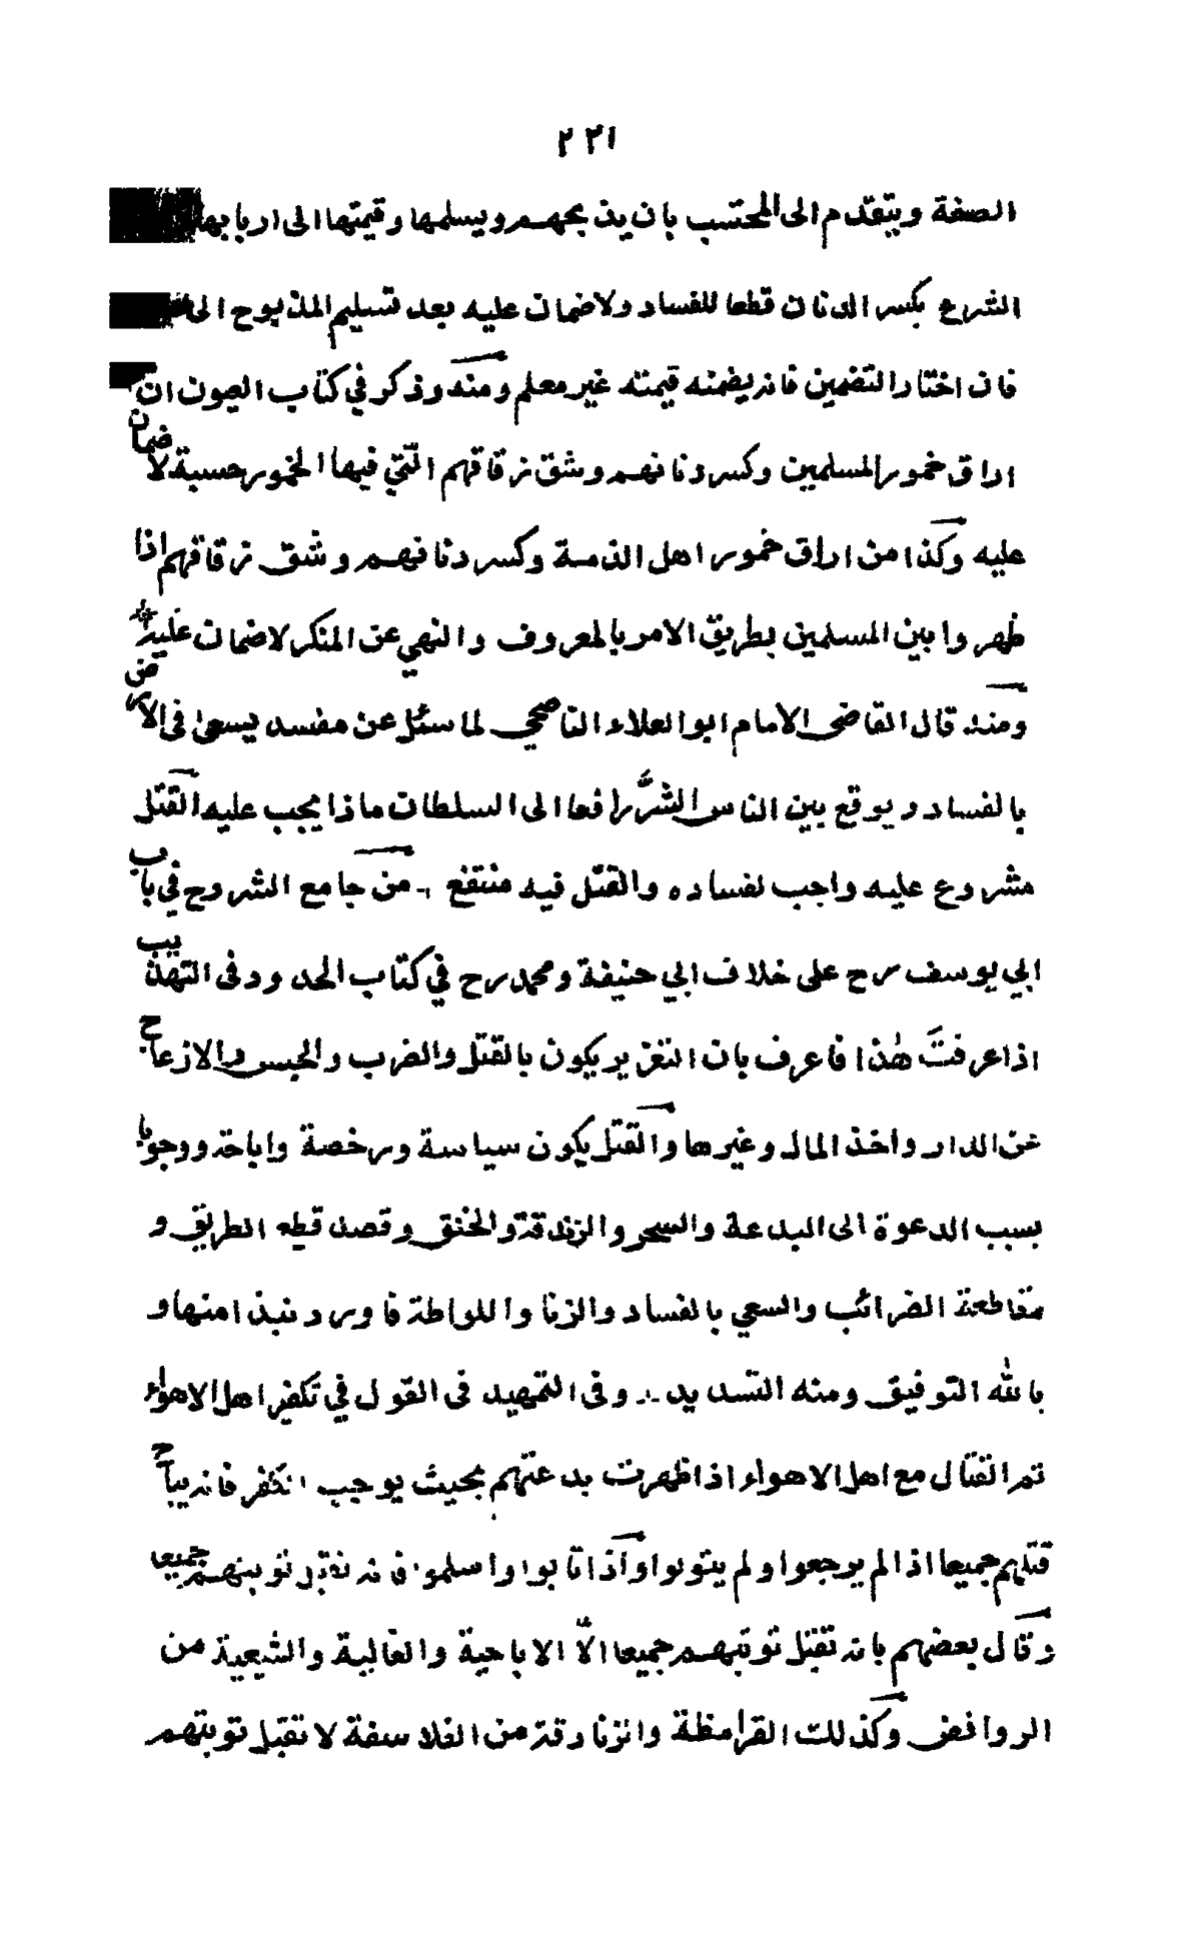 ٢٢١
الصفة ويتقدم الى المحتسب بان يذبحهم ويسلمها وقيمتها الى اربابها
الشرع بكسر الدنان قطعا للفساد ولا ضمان عليه بعد تسليم المذبوح الى
فان اختار التضمين فانه يضمنه قيمته غير معلم ومنه وذكر في كتاب العيون ان
اراق خمور المسلمين وكسر دنانهم وشق زقاقهم التي فيها الخمور حسبة لا ضمان
عليه وكذا من اراق خمور اهل الذمة وكسر دنانهم وشق زقاقهم اذا
ظهروا بين المسلمين بطريق الامر بالمعروف والنهي عن المنكر لا ضمان عليه
ومنه قال القاضي الامام ابو العلاء الناصحي لما سئل عن مفسد يسعى في الارض
بالفساد ويوقع بين الناس الشرَّ رافعا الى السلطان ماذا يجب عليه القتل
مشروع عليه واجب لفساده والقتل فيه منتفع من جامع الشروح في باب
ابي يوسف رح على خلاف ابي حنيفة ومحمد رح في كتاب الحدود وفى التهذيب
اذا عرفتَ هذا فاعرف بان التعزير يكون بالقتل والضرب والحبس والازعاج
عن الدار واخذ المال وغيرها والقتل يكون سياسة ورخصة واباحة ووجوبا
بسبب الدعوة الى البدعة والسحر والزندقة والخنق وقصد قطع الطريق و
مقاطعة الضرائب والسعي بالفساد والزنا واللواطة فاورد نبذا منها و
بالله التوفيق ومنه التسديد ∴ وفى التمهيد فى القول في تكفير اهل الاهواء
ثم القتال مع اهل الاهواء اذا ظهرت بدعتهم بحيث يوجب الكفر فانه يباح
قتلهم جميعا اذا لم يرجعوا ولم يتوبوا واذا تابوا واسلموا فانه تقبل توبتهم جميعا
وقال بعضهم بانه تقبل توبتهم جميعا الّا الاباحية والغالية والشيعية من
الروافض وكذلك القرامطة والزنادقة من الفلاسفة لا تقبل توبتهم